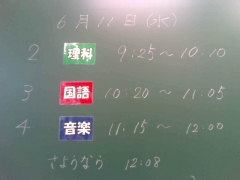 6月11日(水)
2 理科 9:25〜10:10
3 国語 10:20〜11:05
4 音楽 11:15〜12:00
さようなら 12:08